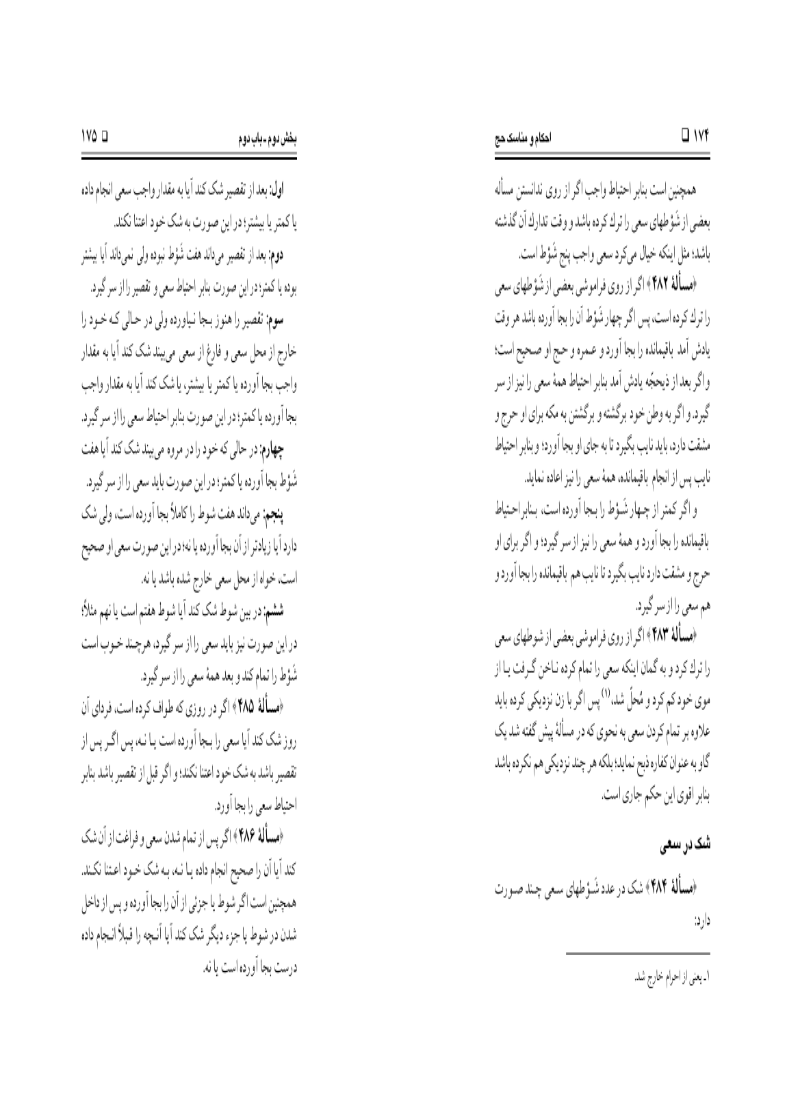 ۱۷۴ ❑ احکام و مناسک حج
همچنین است بنابر احتیاط واجب اگر از روی ندانستن مسأله
بعضی از شَوْطهای سعی را ترک کرده باشد و وقت تدارک آن گذشته
باشد؛ مثل اینکه خیال می‌کرد سعی واجب پنج شَوْط است.
﴿مسألۀ ۴۸۲﴾ اگر از روی فراموشی بعضی از شَوْطهای سعی
را ترک کرده است، پس اگر چهار شَوْط آن را بجا آورده باشد هر وقت
یادش آمد باقیمانده را بجا آورد و عمره و حج او صحیح است؛
و اگر بعد از ذیحجّه یادش آمد بنابر احتیاط همۀ سعی را نیز از سر
گیرد. و اگر به وطن خود برگشته و برگشتن به مکه برای او حرج و
مشقت دارد، باید نایب بگیرد تا به جای او بجا آورد؛ و بنابر احتیاط
نایب پس از انجام باقیمانده، همۀ سعی را نیز اعاده نماید.
و اگر کمتر از چهار شَوْط را بجا آورده است، بنابر احتیاط
باقیمانده را بجا آورد و همۀ سعی را نیز از سر گیرد؛ و اگر برای او
حرج و مشقت دارد نایب بگیرد تا نایب هم باقیمانده را بجا آورد و
هم سعی را از سر گیرد.
﴿مسألۀ ۴۸۳﴾ اگر از روی فراموشی بعضی از شوطهای سعی
را ترک کرد و به گمان اینکه سعی را تمام کرده ناخن گرفت یا از
موی خود کم کرد و مُحلّ شد،(۱) پس اگر با زن نزدیکی کرده باید
علاوه بر تمام کردن سعی به نحوی که در مسألۀ پیش گفته شد یک
گاو به عنوان کفاره ذبح نماید؛ بلکه هر چند نزدیکی هم نکرده باشد
بنابر اقوی این حکم جاری است.
شک در سعی
﴿مسألۀ ۴۸۴﴾ شک در عدد شَوْطهای سعی چند صورت
دارد:
۱ـ یعنی از احرام خارج شد.
بخش دوم ـ باب دوم ❑ ۱۷۵
اول: بعد از تقصیر شک کند آیا به مقدار واجب سعی انجام داده
یا کمتر یا بیشتر؛ در این صورت به شک خود اعتنا نکند.
دوم: بعد از تقصیر می‌داند هفت شَوْط نبوده ولی نمی‌داند آیا بیشتر
بوده یا کمتر؛ در این صورت بنابر احتیاط سعی و تقصیر را از سر گیرد.
سوم: تقصیر را هنوز بجا نیاورده ولی در حالی که خود را
خارج از محل سعی و فارغ از سعی می‌بیند شک کند آیا به مقدار
واجب بجا آورده یا کمتر یا بیشتر، یا شک کند آیا به مقدار واجب
بجا آورده یا کمتر؛ در این صورت بنابر احتیاط سعی را از سر گیرد.
چهارم: در حالی که خود را در مروه می‌بیند شک کند آیا هفت
شَوْط بجا آورده یا کمتر؛ در این صورت باید سعی را از سر گیرد.
پنجم: می‌داند هفت شوط را کاملاً بجا آورده است، ولی شک
دارد آیا زیادتر از آن بجا آورده یا نه؛ در این صورت سعی او صحیح
است، خواه از محل سعی خارج شده باشد یا نه.
ششم: در بین شوط شک کند آیا شوط هفتم است یا نهم مثلاً؛
در این صورت نیز باید سعی را از سر گیرد، هرچند خوب است
شَوْط را تمام کند و بعد همۀ سعی را از سر گیرد.
﴿مسألۀ ۴۸۵﴾ اگر در روزی که طواف کرده است، فردای آن
روز شک کند آیا سعی را بجا آورده است یا نه، پس اگر پس از
تقصیر باشد به شک خود اعتنا نکند؛ و اگر قبل از تقصیر باشد بنابر
احتیاط سعی را بجا آورد.
﴿مسألۀ ۴۸۶﴾ اگر پس از تمام شدن سعی و فراغت از آن شک
کند آیا آن را صحیح انجام داده یا نه، به شک خود اعتنا نکند.
همچنین است اگر شوط یا جزئی از آن را بجا آورده و پس از داخل
شدن در شوط یا جزء دیگر شک کند آیا آنچه را قبلاً انجام داده
درست بجا آورده است یا نه.